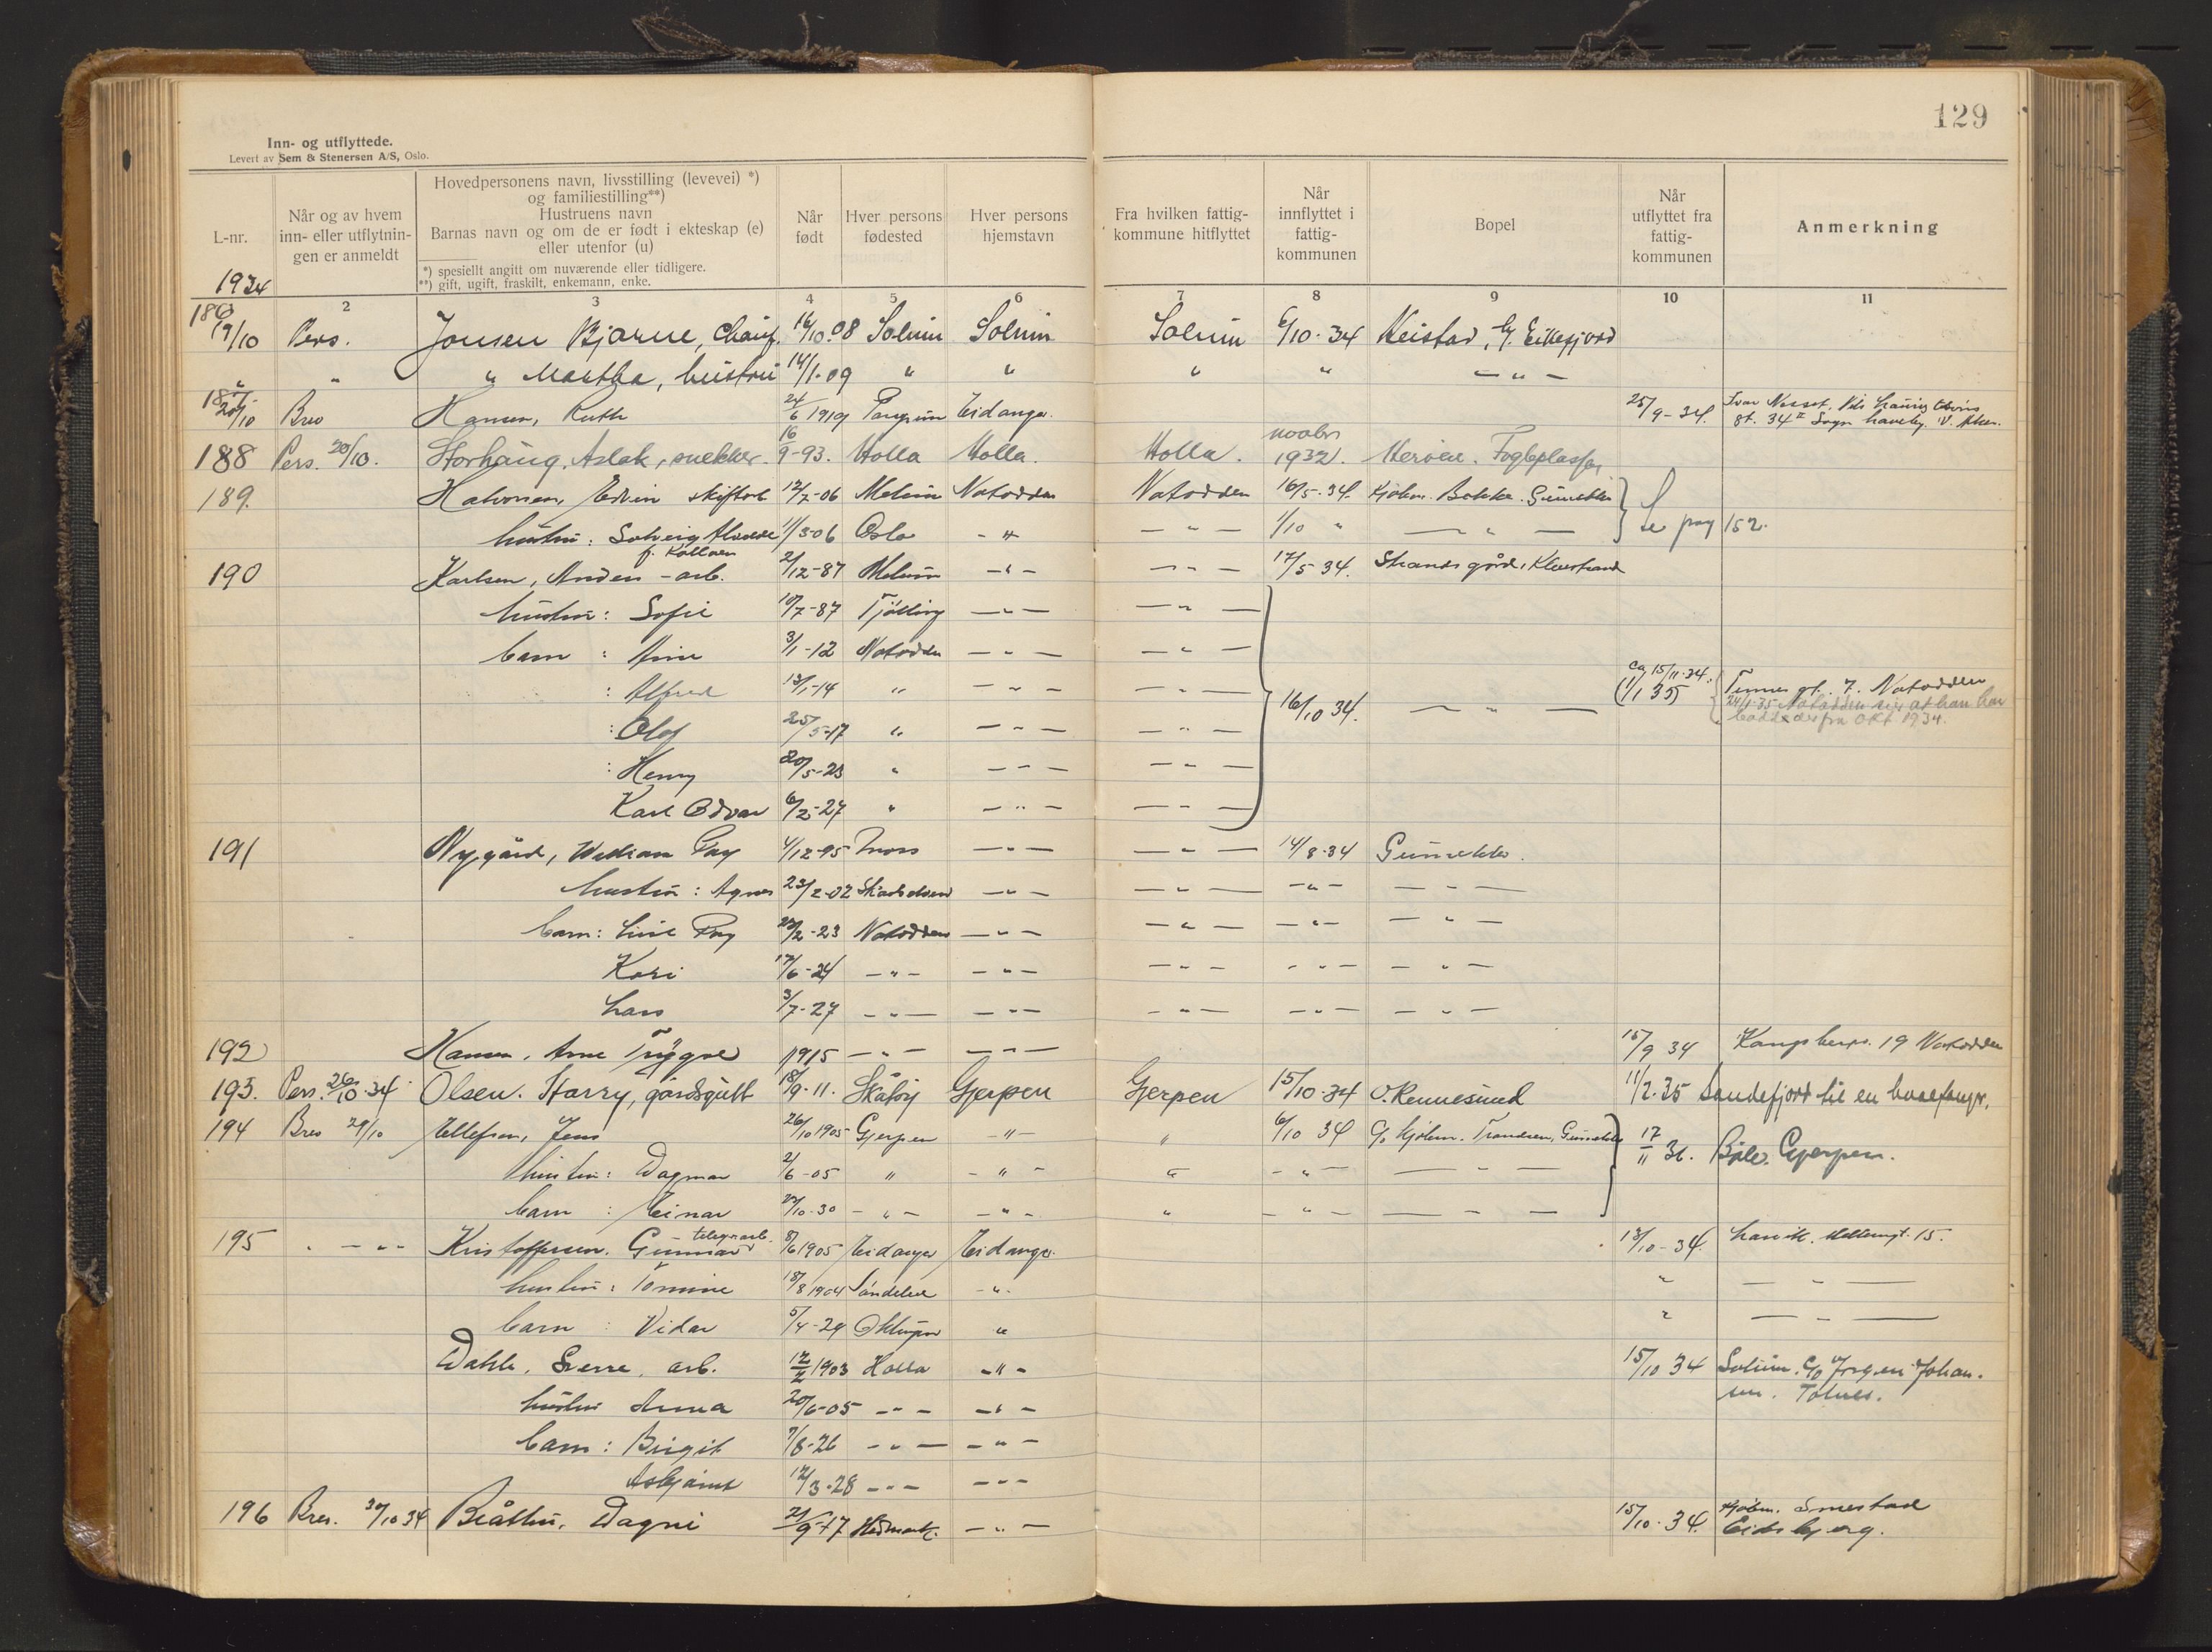 129
Inn- og utflyttede.
Levert av Sem & Stenersen A/S, Oslo.
L-nr.
1934
Når og av hvem
inn- eller utflytnin-
gen er anmeldt
2
Hovedpersonens navn, livsstilling (levevei) *)
og familiestilling**)
Hustruens navn
Barnas navn og om de er født i ekteskap (e)
eller utenfor (u)
*) spesiellt angitt om nuværende eller tidligere.
**) gift, ugift, fraskilt, enkemann, enke.
3
Når
født
4
Hver persons
fødested
5
Hver persons
hjemstavn
6
Fra hvilken fattig-
kommune hitflyttet
7
Når
innflyttet i
fattig-
kommunen
8
Bopel
9
Når
utflyttet fra
fattig-
kommunen
10
Anmerkning
11
186
19/10 Pers. Jonsen Bjarne, Chauf. 16/10.08 Solum Solum Solum 6/10-34
" " " Martha, hustru 14/1-09 " " " " — " —
187
20/10 Brev Hansen, Ruth 24/6 1919 Eidanger 25/9-34.
gt. 34 II Sogn haveby. V. Aker.
188 Pers. 20/10. Storhaug, Aslak, snekker. 16/9-93. Holla Holla. Holla. novbr 1932. Herøen.
189. Halvorsen, Edvin 12/7-06 Melum Notodden Notodden 16/5-34. Se pag 152.
hustru: Solveig 1/3-06 Oslo - " - — " — 1/10 " — " —
190 Karlsen, Anders - arb. 2/12-87 Melum - " - — " — 17/5 34. Strands gård, Klevstrand
hustru: Sofie 10/7-87 Tjølling — " — — " —
barn : 3/1-12 Notodden — " — — " —
: Alfred 13/1-14 " — " — — " — 16/10 34. — " — ca 15/11-34. (1/1 35) gt. 7. Notodden
: Olaf 25/5-17 " — " — — " — 24/1-35 Notodden sier at han har
bodd der fra Okt 1934.
: Henry 20/5-23 " — " — — " —
Karl Odvar 6/2-27 " — " — — " —
191 Nygård, 4/12-95 — " — — " — 14/8-34
hustru: Agnes 23/2-02 — " — — " — — " — — " —
barn: 22/2-23 Notodden — " — — " — — " — — " —
Kari 17/6-24 — " — — " — — " — — " — — " —
Lars 3/7-27 — " — — " — — " — — " — — " —
192 Hansen, Arne Trygve 1915 — " — — " — 15/9 34 19 Notodden
193. Pers. 26/10-34 Olsen. Harry, gårdsgutt 18/9-11. Skåtøy Gjerpen Gjerpen 15/10-34 O. Rennesund 11/2-35 Sandefjord til en hvalfanger.
194 Brev 29/10 Ellefsen, Jens 26/10 1905 Gjerpen - " - " 6/10 34 c/o Kjøbm. 17/11 36. Bøle. Gjerpen.
hustru: Dagmar 2/6-05 " - " - " - " - — " —
barn : Einar 22/10-30 - " - - " - " - " - — " —
195 " - " - Kristoffersen, Gunnar telegrarb. 8/6 1905 Eidanger Eidanger. 13/10-34. Larvik. 15.
hustru: Tomine 18/8 1904 Søndeled - " - " — " —
barn : Vidar 5/4-29 " " — " —
Dahle, Sverre, arb. 1903 Holla - " - 15/10 34 Solum. c/o Jørgen Johan-
sen. Tolnes.
hustru Anna 20/6-05 - " - - " -
barn: Birgit 7/8-26 - " - - " -
Asbjørnt 12/3-28 - " - - " -
196 Brev. 30/10 34 Bråthu, Dagni 21/9-17 Hedmark - " - 15/10-34. Kjøbm. Smestad
Eidsberg.